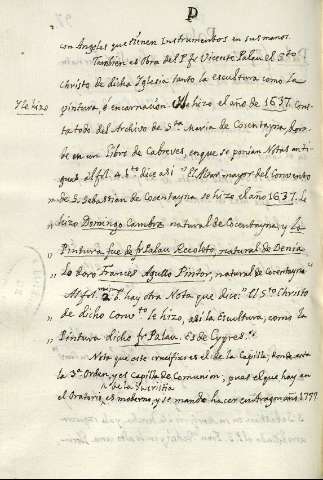 P
con Angeles que tienen Instrumentos en sus manos.
Tambien es Obra del P. fr. Vicente Palau el S.to
Christo de dicha Iglesia tanto la escultura como la
pintura ó encarnación
Y le hizo
hizo el año de 1637. Cons-
ta todo del Archivo de S.ta Maria de Cocentayna
en un libro de Cabreves, en que se ponian Notas anti-
guas al fol. 4. b.to dice asi "El Altar mayor del Convento
"de S. Sebastian de Cocentayna se hizo el año 1637. Le
"hizo Domingo Cambra natural de Cocentayna, y la
"Pintura fue de fr. Palau Recoleto, natural de Denia
"Lo doro Frances Agullo Pintor, natural de Cocentayna"
Al fol. hay otra Nota que dice: "El S.to Christo
"de dicho Conv.to le hizo, asi la Escultura, como la
"Pintura dicho fr. Palau. Es de Cypres."
Nota que este crucifixo es el de la Capilla, donde está
la 3.a Orden, y es Capilla de Comunion, pues el que hay en
el Oratorio
de la Sacristia
es moderno, y se mando hacer en Aragon año 1777